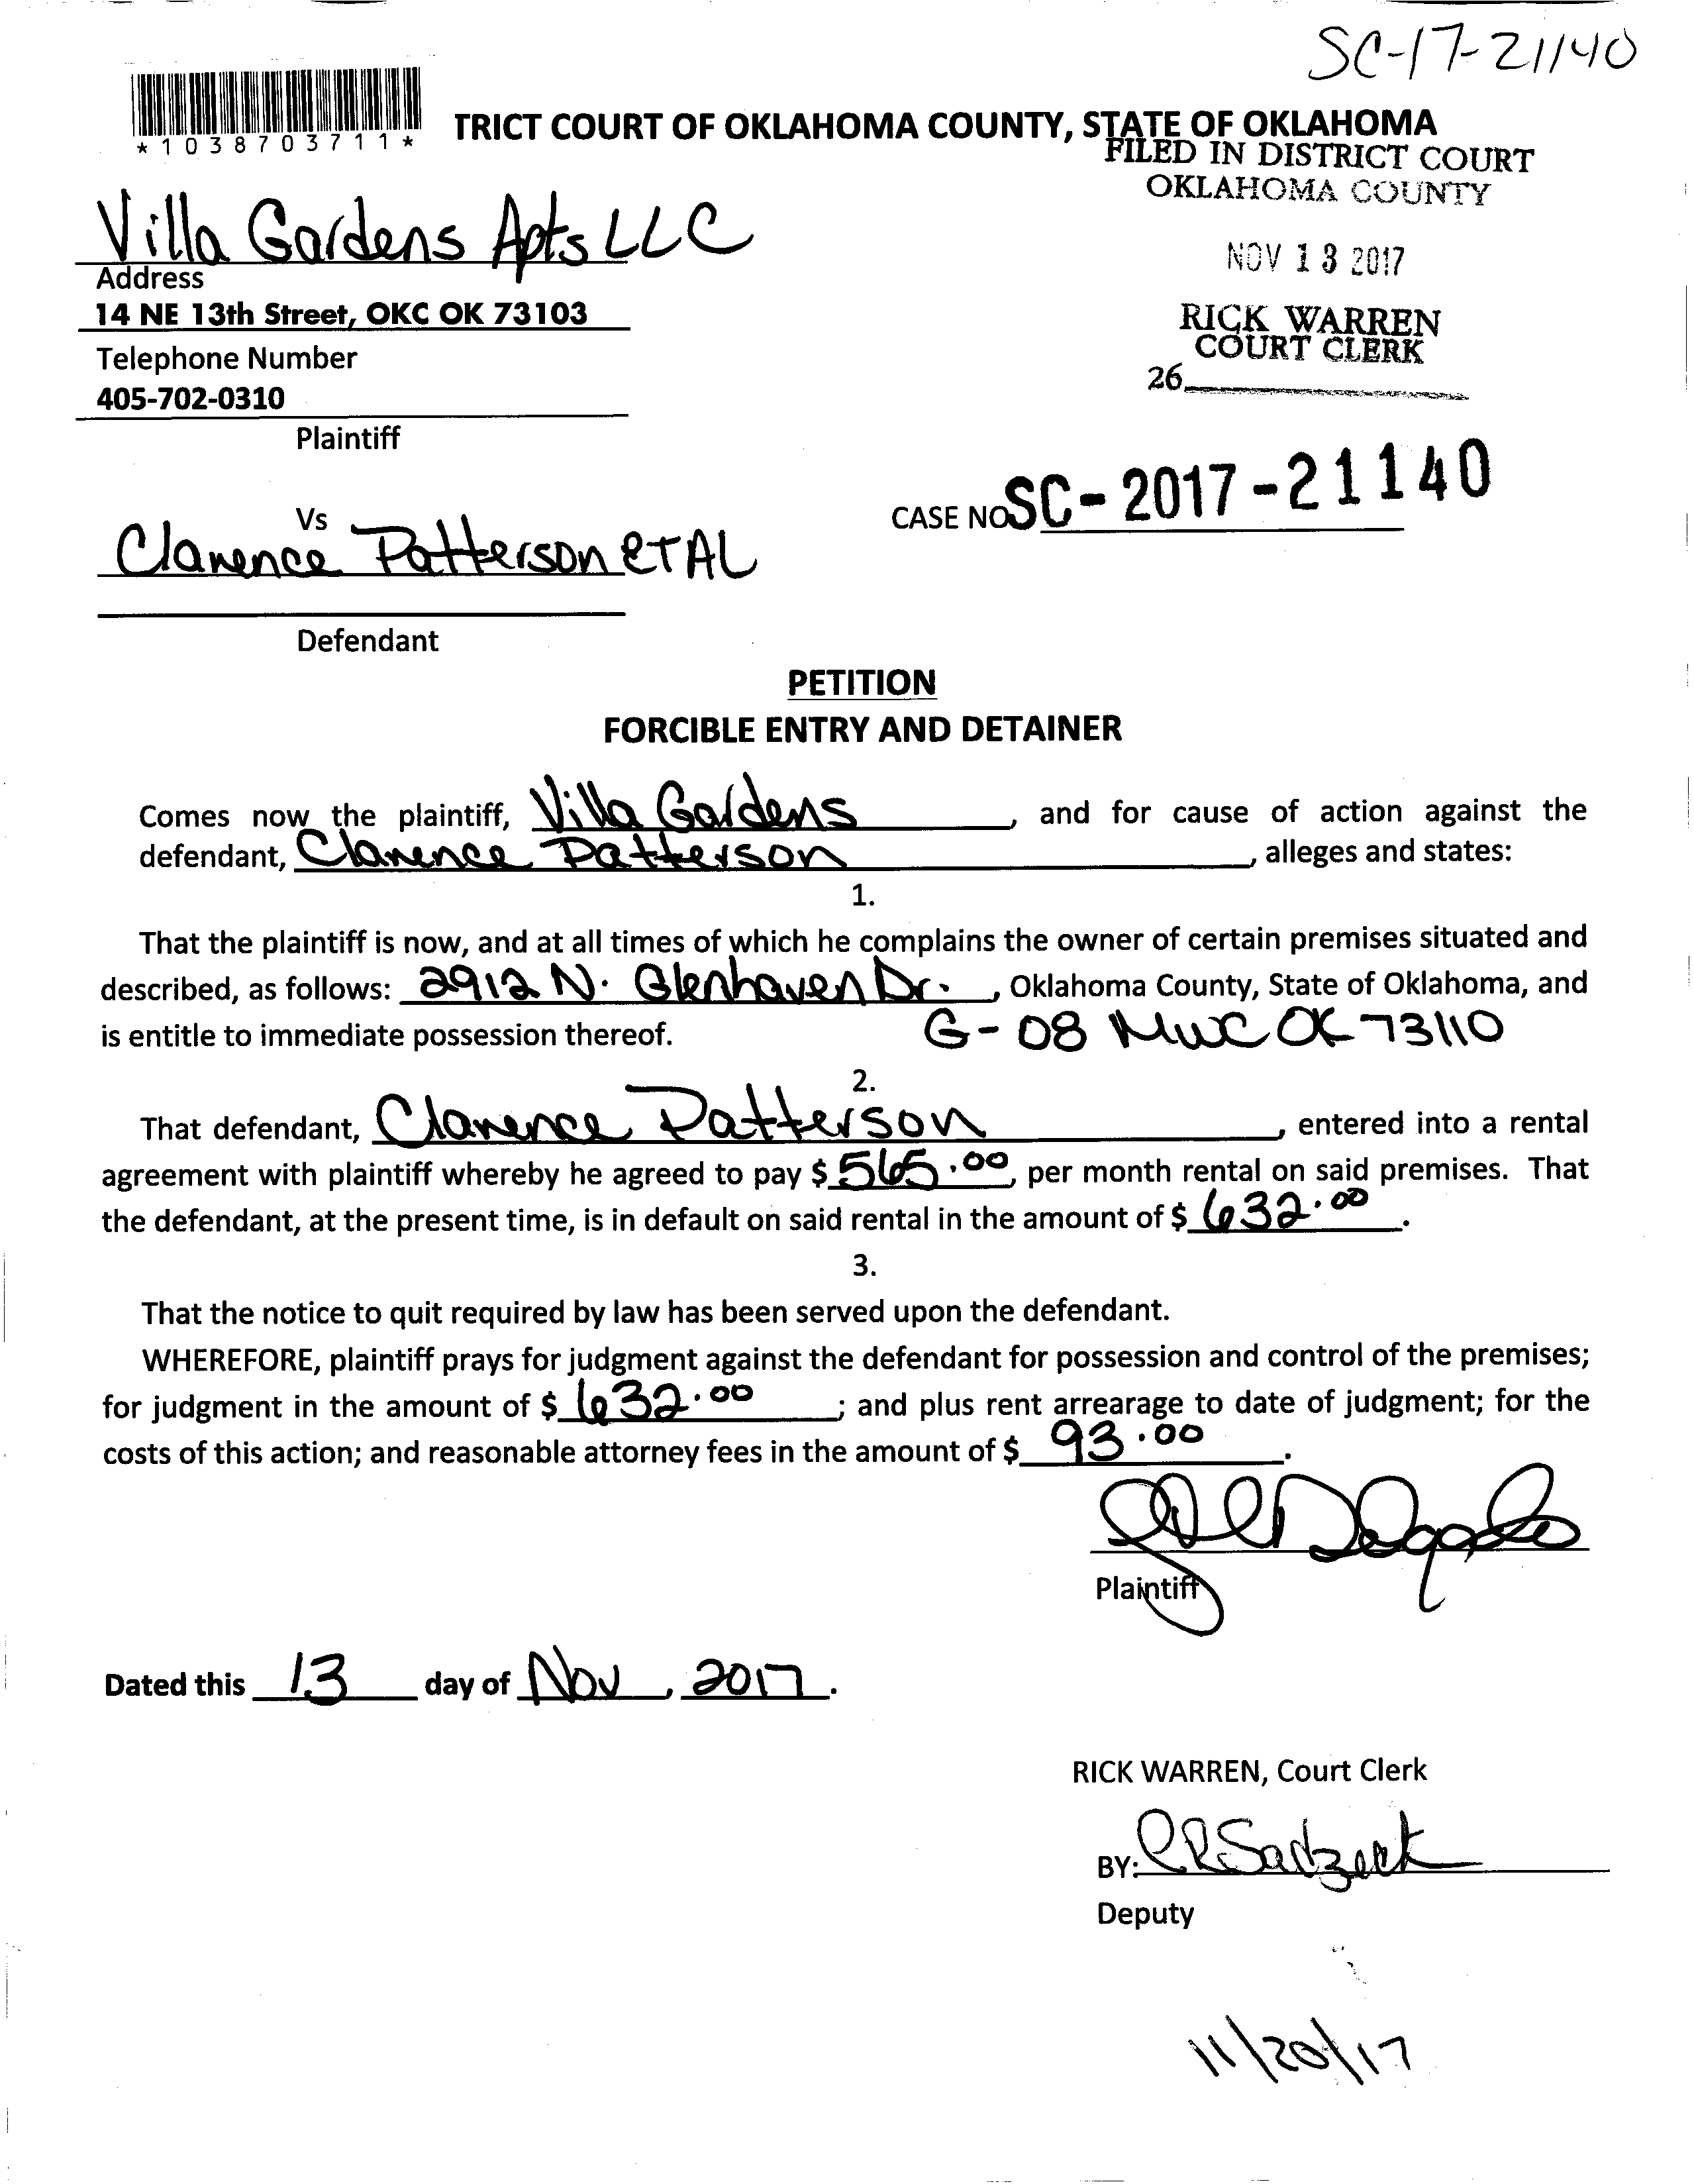 SC-17-21140
*1038703711*
TRICT COURT OF OKLAHOMA COUNTY, STATE OF OKLAHOMA
FILED IN DISTRICT COURT
OKLAHOMA COUNTY
NOV 13 2017
RICK WARREN
COURT CLERK
26
Villa Gardens Apts LLC
Address
14 NE 13th Street, OKC OK 73103
Telephone Number
405-702-0310
Plaintiff
Vs
CASE NO SC-2017-21140
Clarence Patterson et AL
Defendant
PETITION
FORCIBLE ENTRY AND DETAINER
Comes now the plaintiff, Villa Gardens, and for cause of action against the
defendant, Clarence Patterson, alleges and states:
1.
That the plaintiff is now, and at all times of which he complains the owner of certain premises situated and
described, as follows: 2912 N. Glenhaven Dr., Oklahoma County, State of Oklahoma, and
is entitle to immediate possession thereof. G-08 MWC OK 73110
2.
That defendant, Clarence Patterson, entered into a rental
agreement with plaintiff whereby he agreed to pay $ 565.00, per month rental on said premises. That
the defendant, at the present time, is in default on said rental in the amount of $ 632.00.
3.
That the notice to quit required by law has been served upon the defendant.
WHEREFORE, plaintiff prays for judgment against the defendant for possession and control of the premises;
for judgment in the amount of $ 632.00; and plus rent arrearage to date of judgment; for the
costs of this action; and reasonable attorney fees in the amount of $ 93.00.
Delgado
Plaintiff
Dated this 13 day of Nov, 2017.
RICK WARREN, Court Clerk
BY:
Deputy
11/20/17